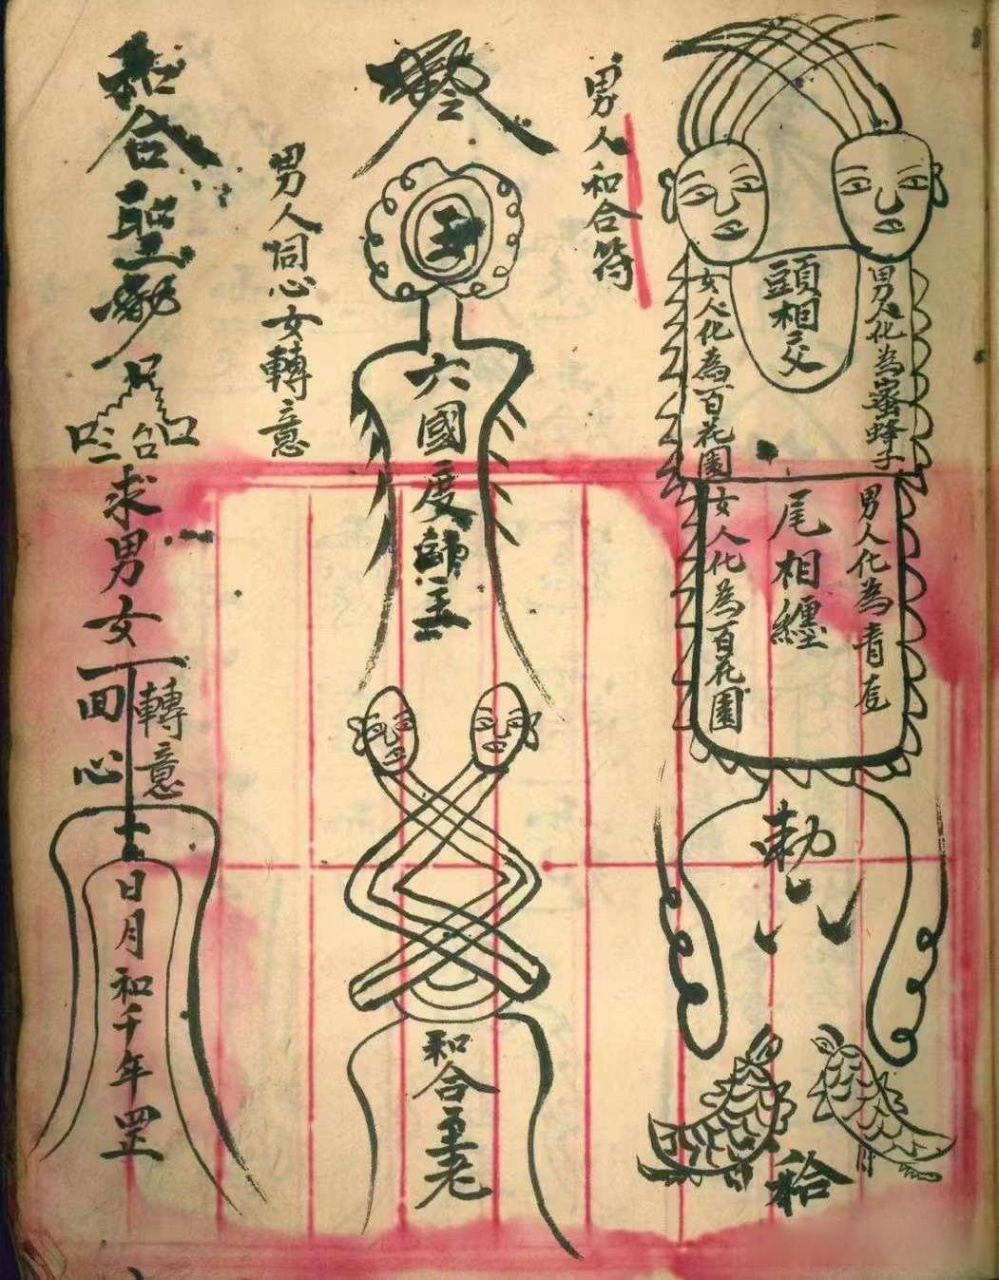 頭相交
男人化為蜜蜂子
女人化為百花園
男人化為青
尾相纏
女人化為百花園
勅
男人和合符
玉
六國度師主
和合聖老
男人同心女轉意
和合聖
求男女
轉意
回心
日月和千年罡